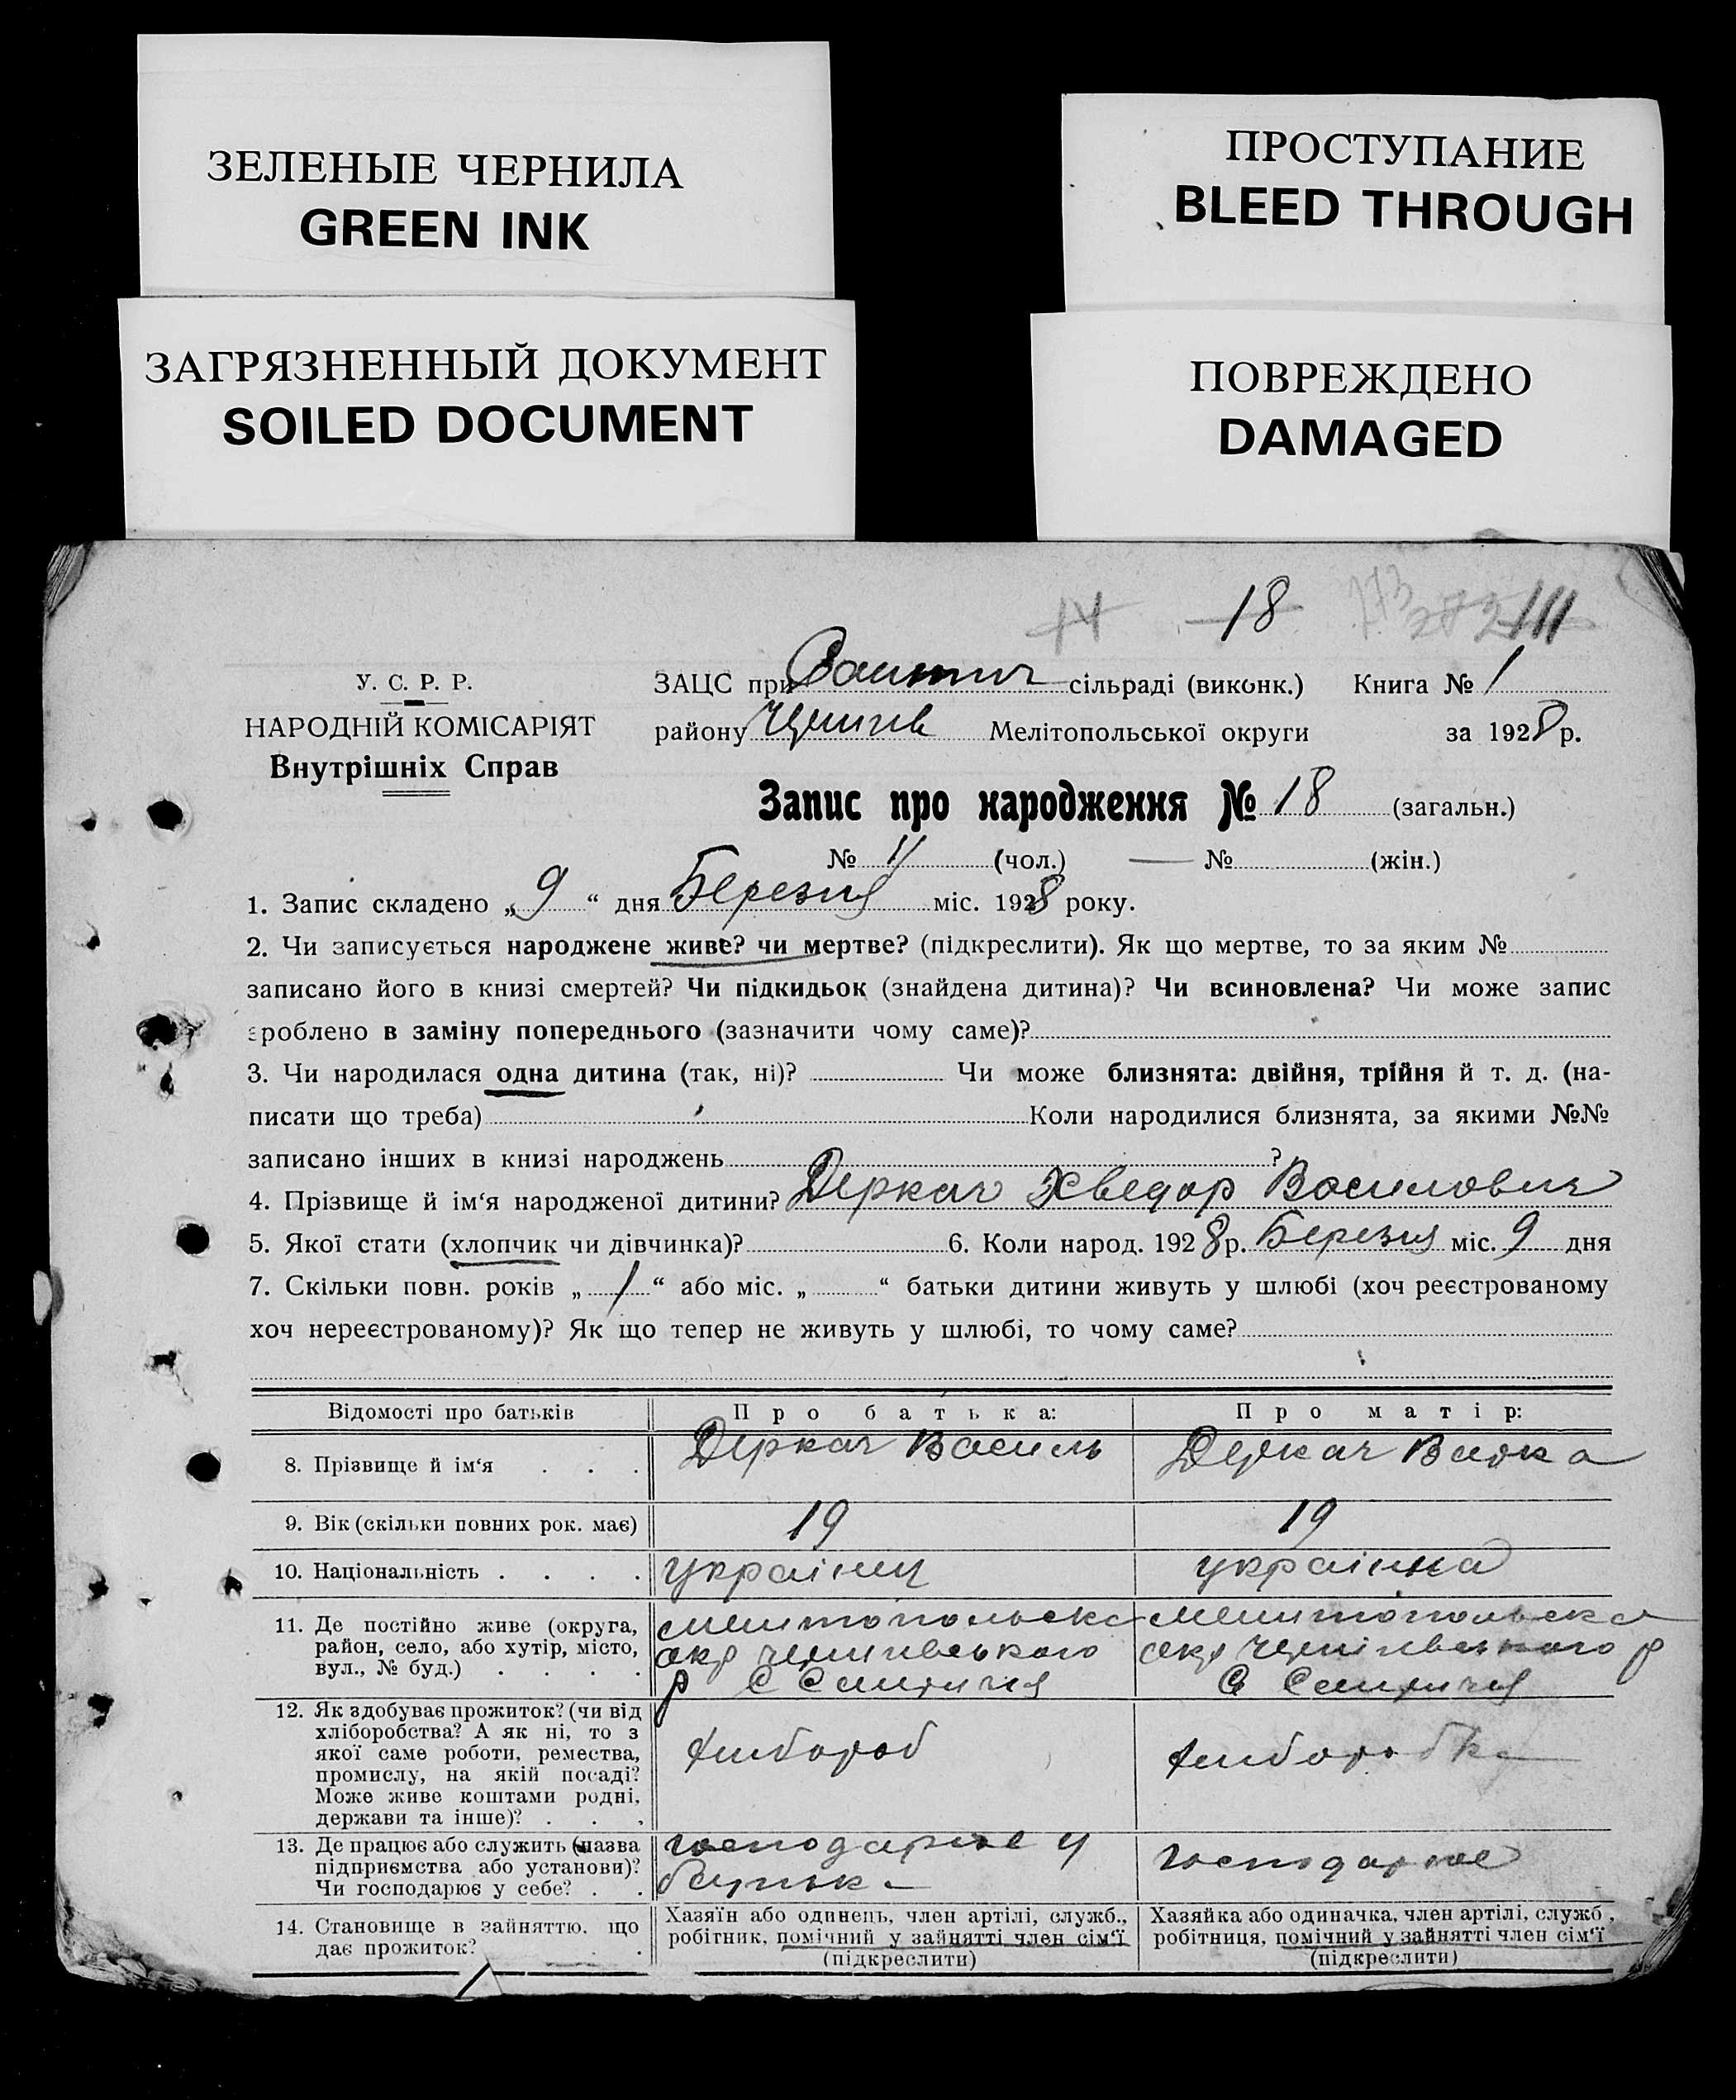 ЗЕЛЕНЫЕ ЧЕРНИЛА
GREEN INK
ПРОСТУПАНИЕ
BLEED THROUGH
ЗАГРЯЗНЕННЫЙ ДОКУМЕНТ
SOILED DOCUMENT
ПОВРЕЖДЕНО
DAMAGED
14 18
У. С. Р. Р.
НАРОДНІЙ КОМІСАРІЯТ
Внутрішніх Справ
ЗАЦС при сільраді (виконк.) Книга № 1
району Мелітопольської округи за 1928 р.
Запис про народження № 18 (загальн.)
№ 11 (чол.) — № (жін.)
1. Запис складено „ 9 “ дня Березня міс. 1928 року.
2. Чи записується народжене живе? чи мертве? (підкреслити). Як що мертве, то за яким №
записано його в книзі смертей? Чи підкидьок (знайдена дитина)? Чи всиновлена? Чи може запис
зроблено в заміну попереднього (зазначити чому саме)?
3. Чи народилася одна дитина (так, ні)? Чи може близнята: двійня, трійня й т. д. (на-
писати що треба) Коли народилися близнята, за якими №№
записано інших в книзі народжень ?
4. Прізвище й ім‘я народженої дитини? Деркач Хведор Василович
5. Якої стати (хлопчик чи дівчинка)? 6. Коли народ. 1928 р. Березня міс. 9 дня
7. Скільки повн. років „ 1 “ або міс. „ “ батьки дитини живуть у шлюбі (хоч реєстрованому
хоч нереєстрованому)? Як що тепер не живуть у шлюбі, то чому саме?
Відомості про батьків Про батька: Про матір:
8. Прізвище й ім‘я . . . Деркач Василь Деркач
9. Вік (скільки повних рок. має) 19 19
10. Національність . . . . українец українка
11. Де постійно живе (округа,
район, село, або хутір, місто,
вул., № буд.) . . . .
Мелитопольска
окр Чернигвського
р С
Мелитопольска
окр Чернігвського р
С
12. Як здобуває прожиток? (чи від
хліборобства? А як ні, то з
якої саме роботи, ремества,
промислу, на якій посаді?
Може живе коштами родні,
держави та інше)? . . .
хлибороб хлиборобка
13. Де працює або служить (назва
підприємства або установи)?
Чи господарює у себе? . .
господарює у
батька
господарює
14. Становище в зайняттю, що
дає прожиток? . .
Хазяїн або одинець, член артілі, служб.,
робітник, помічний у зайнятті член сім‘ї
(підкреслити)
Хазяйка або одиначка, член артілі, служб.,
робітниця, помічний у зайнятті член сім‘ї
(підкреслити)